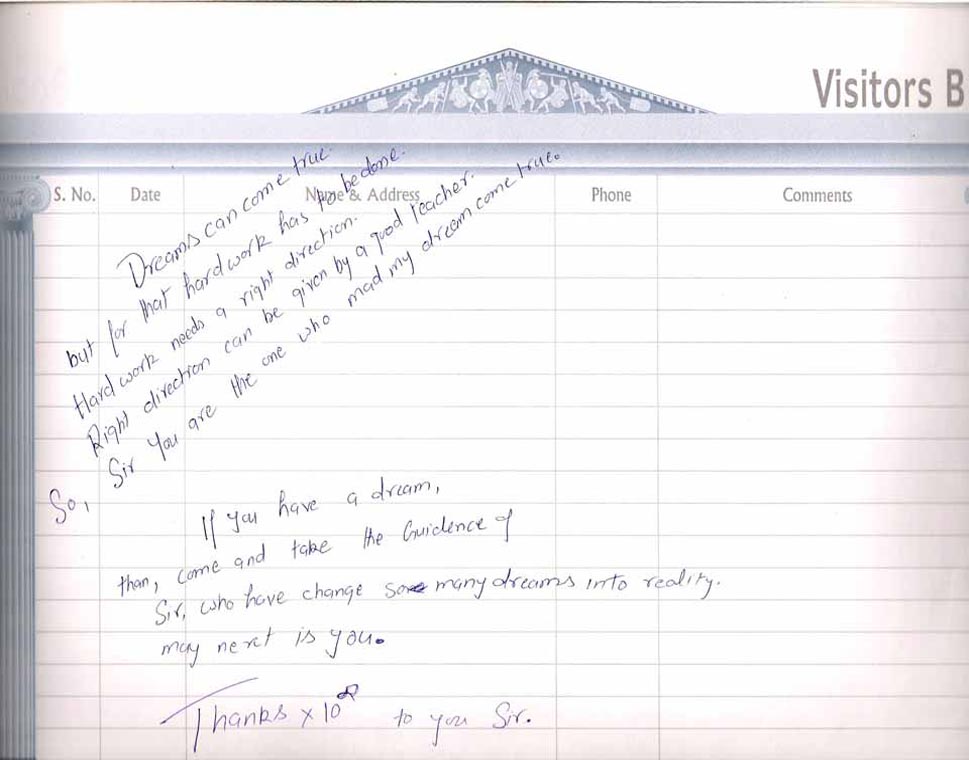 Visitors B
S. No. Date Name & Address Phone Comments
Dreams can come true.
but for that hardwork has to be done.
Hardwork needs a right direction.
Right direction can be given by a good teacher.
Sir You are the one who mad my dream come true.
So,
If you have a dream,
than, come and take the Guidence of
Sir, who have change so many dreams into reality.
may next is you.
Thanks × 10^∞ to you Sir.